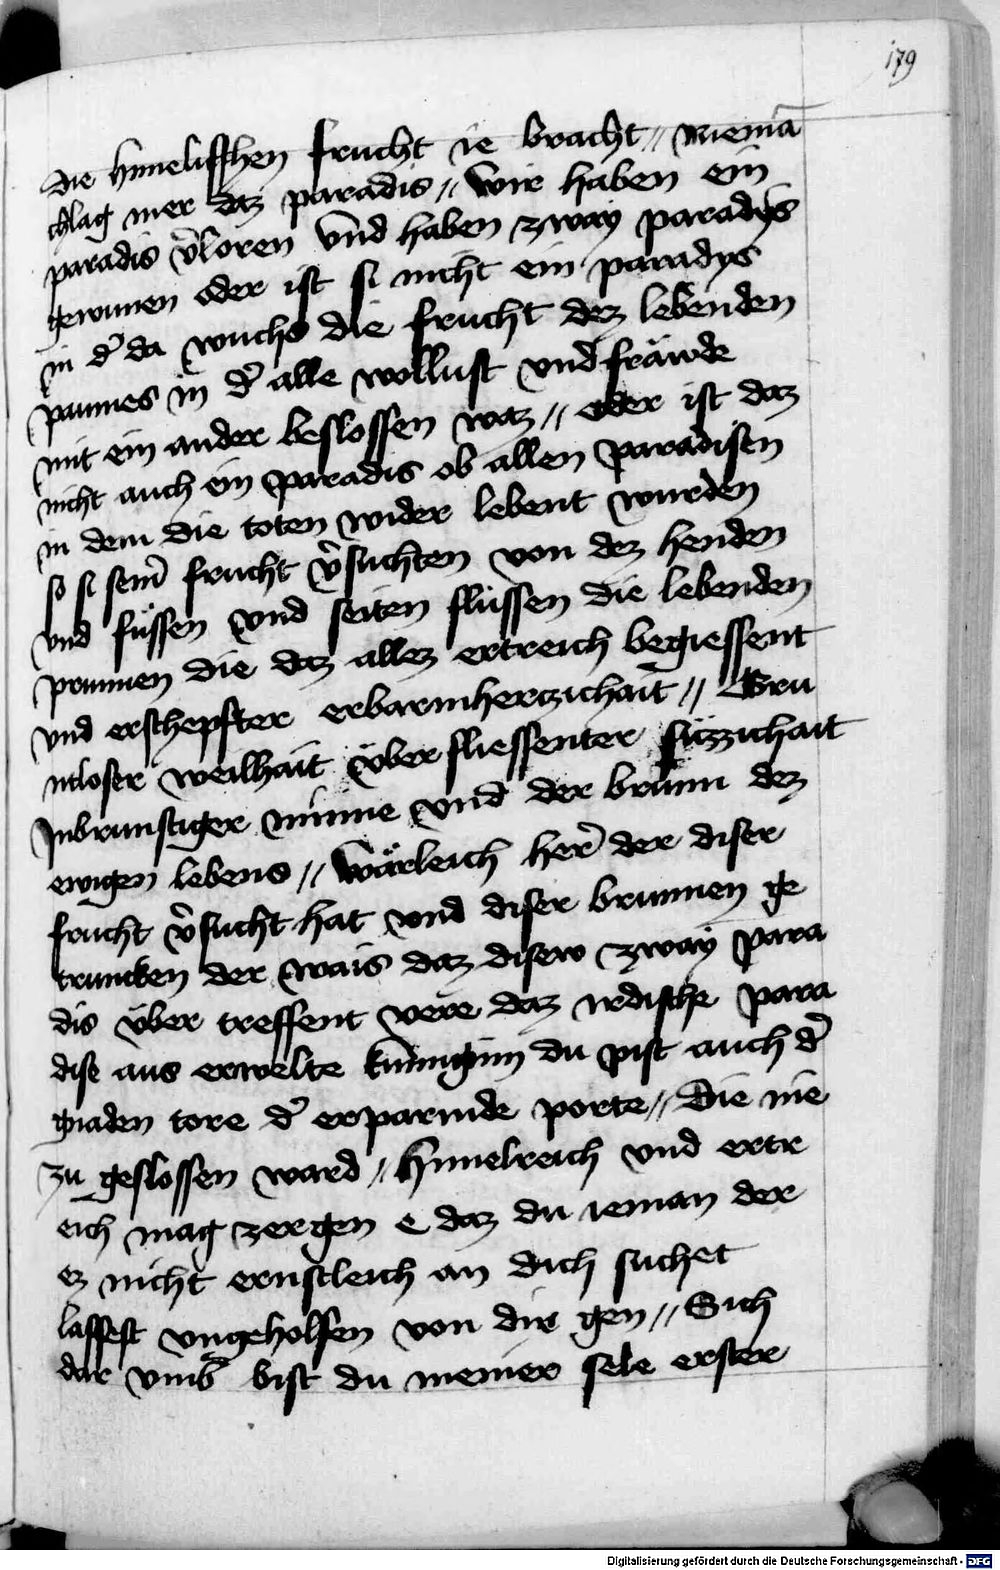 179
die himelisshen frucht ie bracht // Niemā
chlag mer daz paradis // wir haben ein
paradis v̉loren vnd haben zway paradys
gewunen oder ist si nicht ein paradys
in d̉ da wuchs die frucht dez lebenden
paumes in d̉ alle wollust vnd fräwde
mit ein ander beslossen waz // oder ist daz
nicht auch ein paradis ob allen paradisen
in dem die toten wider lebent wurden
so si sein̉ frucht v̉suchten von dez henden
vnd füssen vnd seiten flüssen die lebenden
prunnen die daz allez ertreich begiessent
vnd erschepfter erbarmherczichait // Gru
ntloser weilhait über fliessenter süzzichait
Inbrunstiger minne vnd der brunn dez
ewigen lebens // wärleich her̉ der diser
frucht v̉sucht hat vnd diser brunnen ge
truncken der wais daz disew zway para
dis über treffent verre daz irdische para
dise aus erwelte küniginn du pist auch d̉
gnaden tore d̉ erparmde porte // die nie
zu geslossen ward // himelreich vnd ertr
eich mag zergen e daz du ieman der
ez nicht ernstleich an dich suchet
lassest vngeholfen von dir gen // Sich
dar vmb bist du meiner sele erster
Digitalisierung gefördert durch die Deutsche Forschungsgemeinschaft - DFG